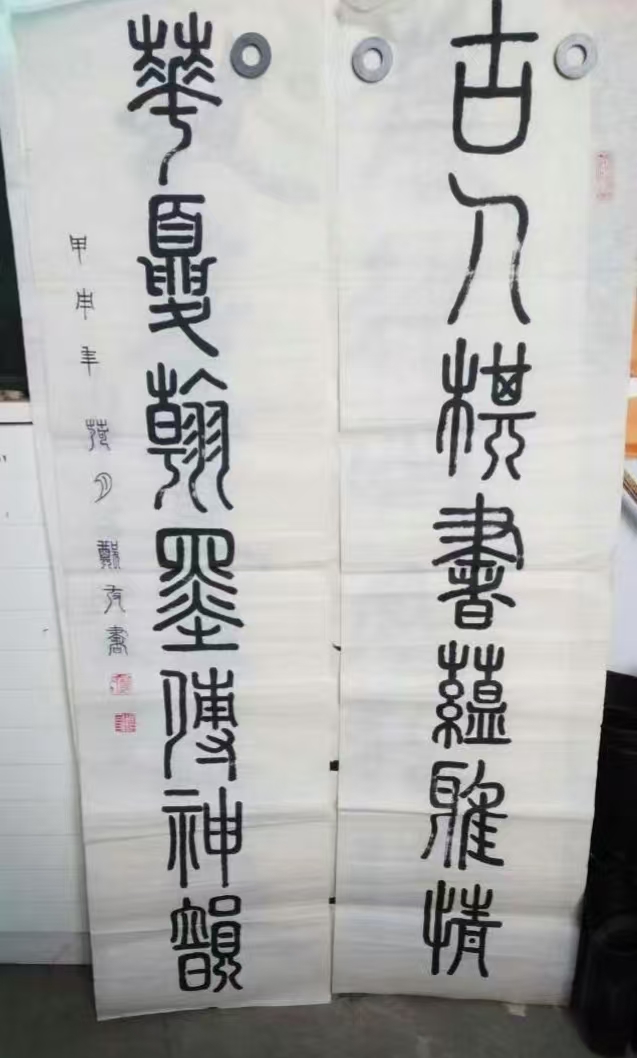 古人棋書蘊雅情
華夏翰墨傳神韻
甲申年
荷月
書